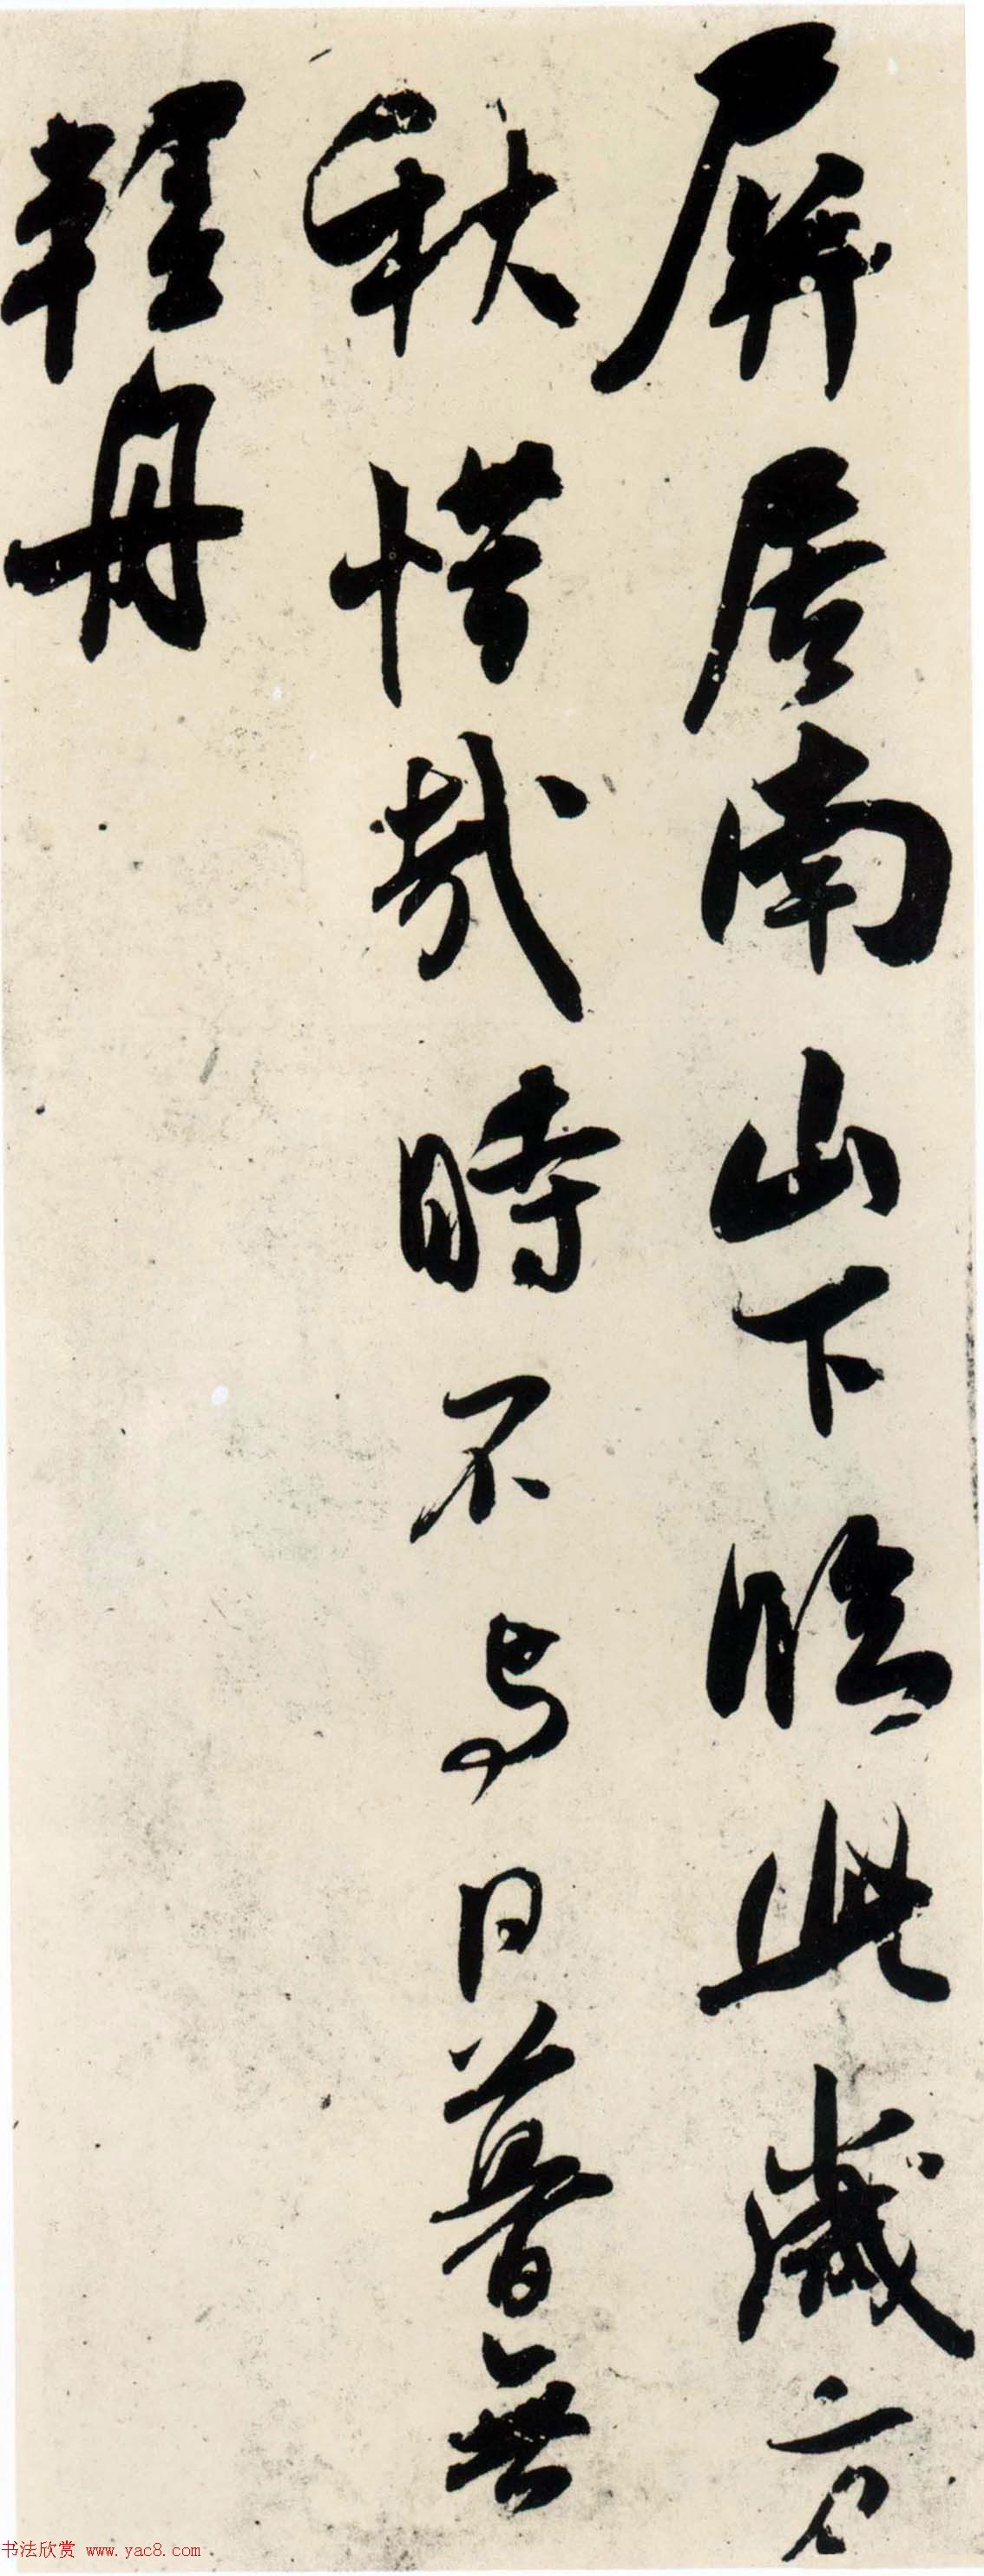 屏居南山下臨此歲方
秋惜哉時不与日暮無
輕舟
书法欣赏 www.yac8.com